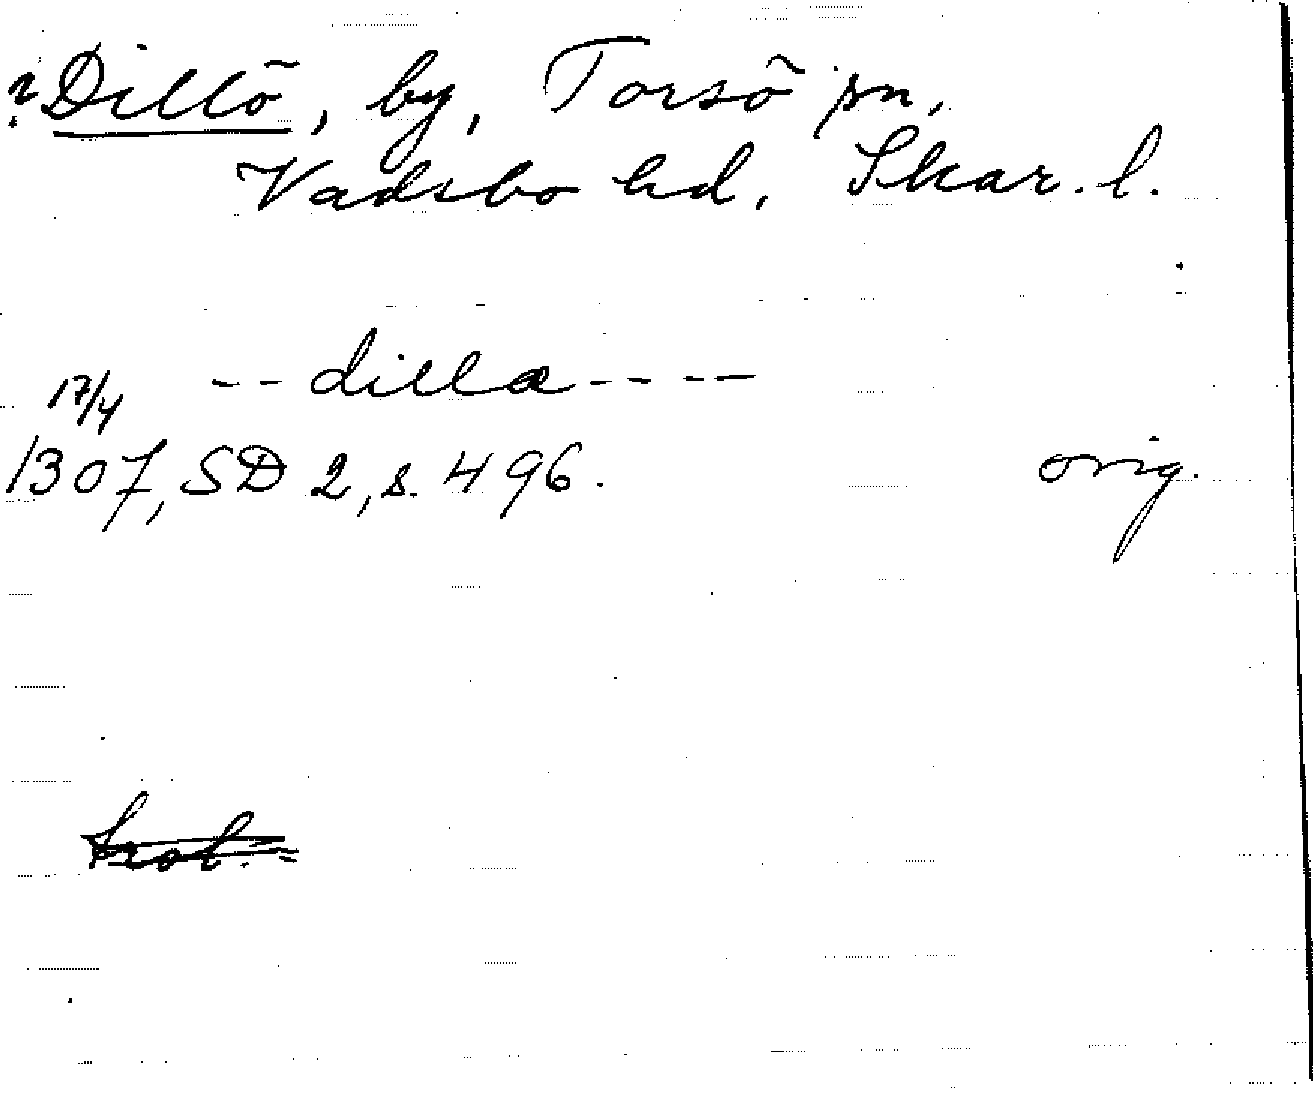 ? Dillö, by, Torsö sn,
Vadsbo hd, Skar. l.
-- dilla ----
17/4
1307, SD 2, s. 496. orig.